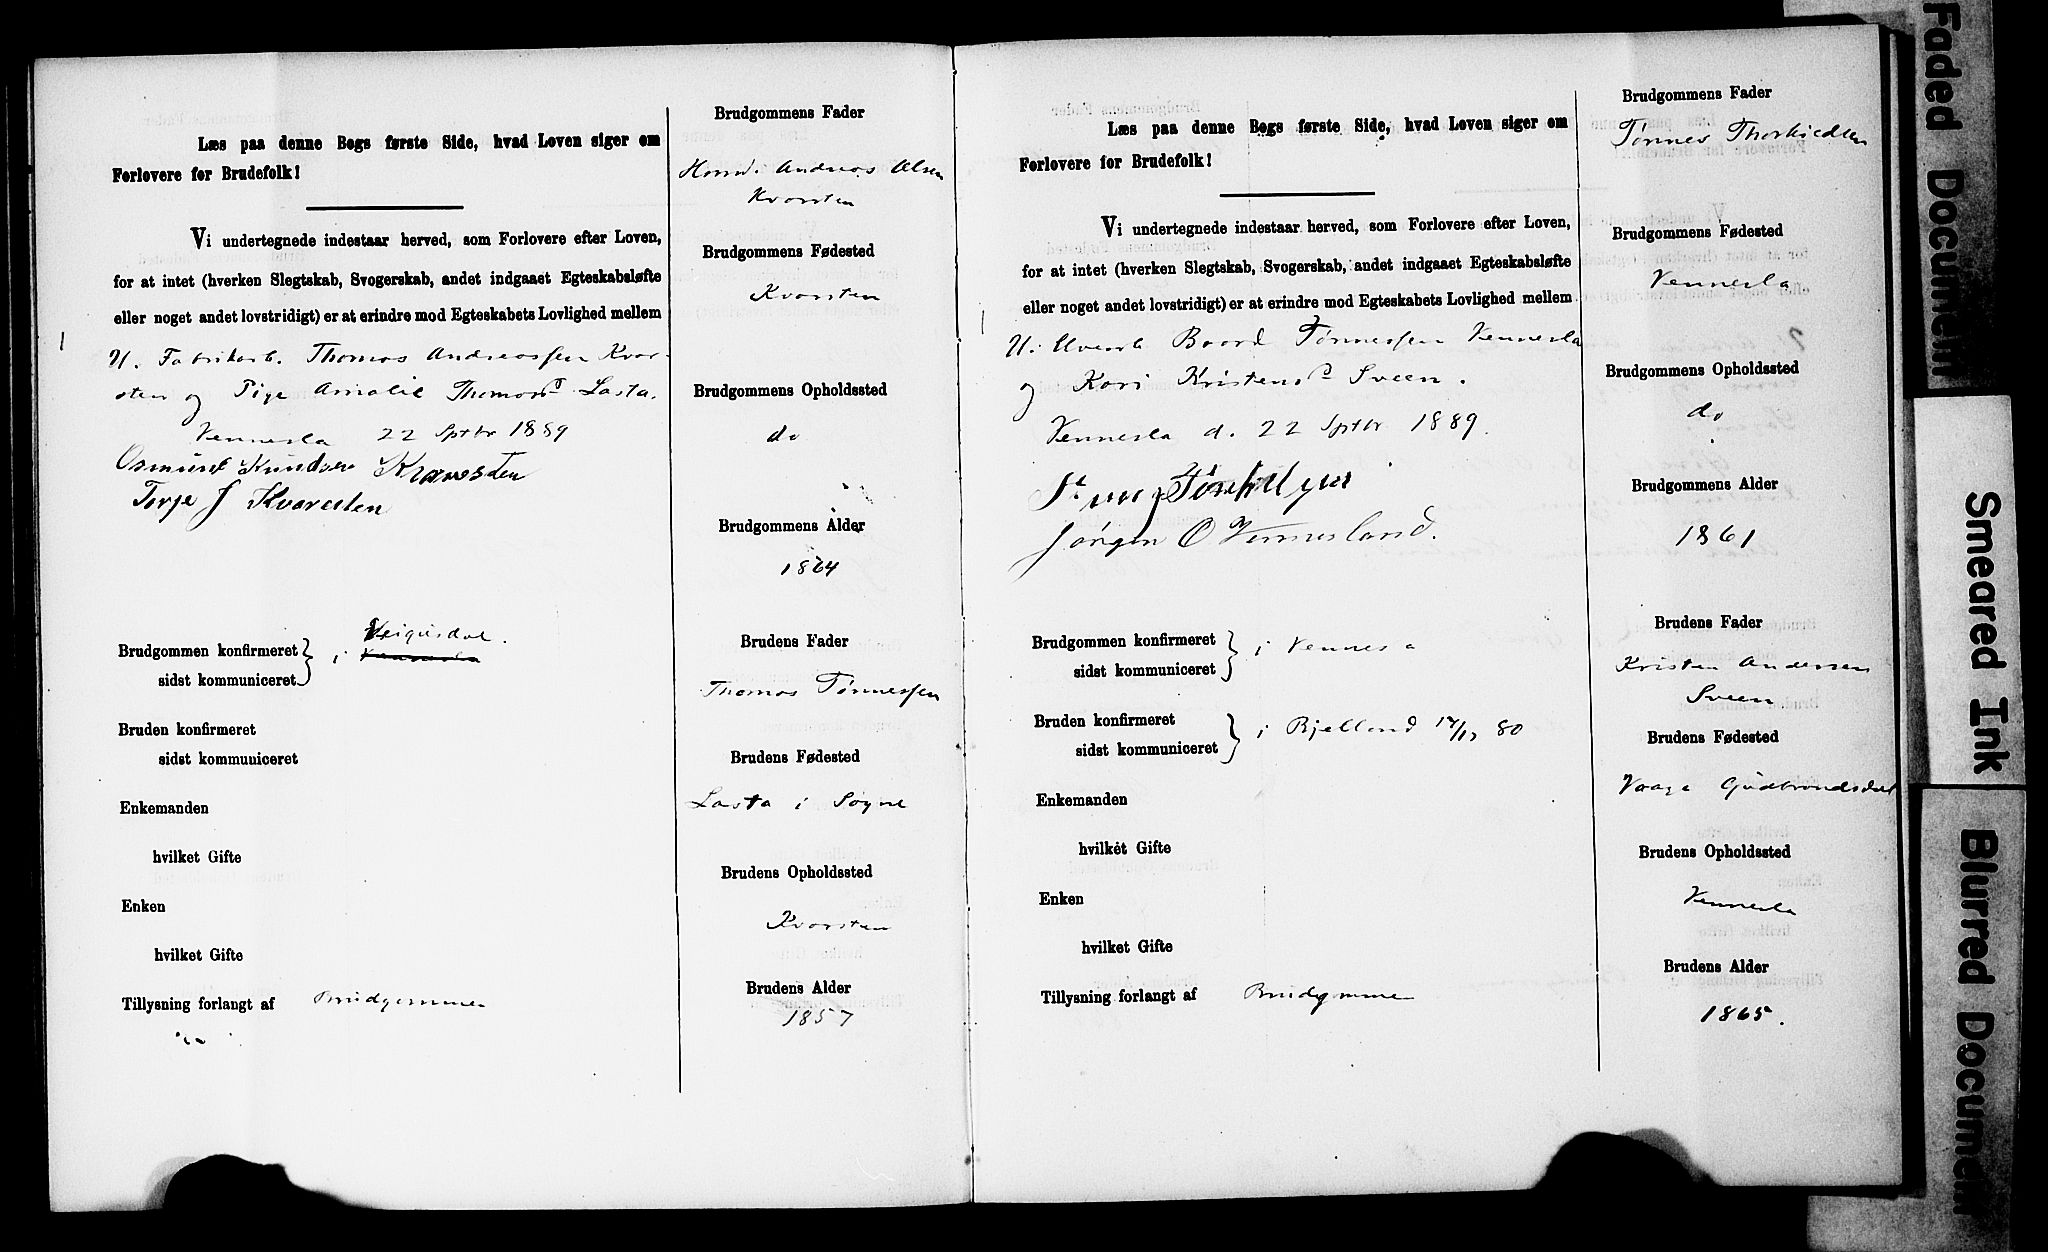 Læs paa denne Bogs første Side, hvad Loven siger om
Forlovere for Brudefolk!
Vi undertegnede indestaar herved, som Forlovere efter Loven,
for at intet (hverken Slegtskab, Svogerskab, andet indgaaet Egteskabsløfte
eller noget andet lovstridigt) er at erindre mod Egteskabets Lovlighed mellem
U. Fabrikarb. Thomas Andreassen Kvar-
sten og Pige Amalie Thomasd Lasta.
Vennesla 22 Sptbr 1889
Osmund Knudsen Kvaresten
Torje J Kvaresten
Brudgommen konfirmeret
sidst kommuniceret
i Veigusdal.
Vennesla
Bruden konfirmeret
sidst kommuniceret
Enkemanden
hvilket Gifte
Enken
hvilket Gifte
Tillysning forlangt af Brudgommen
Brudgommens Fader
Andreas Olsen
Kvarsten
Brudgommens Fødested
Kvarsten
Brudgommens Opholdssted
do
Brudgommens Alder
1864
Brudens Fader
Thomas Tønnessen
Brudens Fødested
Lasta i Søgne
Brudens Opholdssted
Kvarsten
Brudens Alder
1857
Læs paa denne Bogs første Side, hvad Loven siger om
Forlovere for Brudefolk!
Vi undertegnede indestaar herved, som Forlovere efter Loven,
for at intet (hverken Slegtskab, Svogerskab, andet indgaaet Egteskabsløfte
eller noget andet lovstridigt) er at erindre mod Egteskabets Lovlighed mellem
U. Baard Tønnessen Vennesla
og Kari Kristensd Sveen.
Vennesla d. 22 Sptbr 1889.
Jørgen O Vennesland.
Brudgommen konfirmeret
sidst kommuniceret
i Vennesla
Bruden konfirmeret
sidst kommuniceret
i Bjelland 80
Enkemanden
hvilket Gifte
Enken
hvilket Gifte
Tillysning forlangt af Brudgommen
Brudgommens Fader
Tønnes Thorkildsen
Brudgommens Fødested
Vennesla
Brudgommens Opholdssted
do
Brudgommens Alder
1861
Brudens Fader
Kristen Andersen
Sveen
Brudens Fødested
Vaage Gudbrandsdal
Brudens Opholdssted
Vennesla
Brudens Alder
1865.
Faded Document
Smeared Ink
Blurred Document